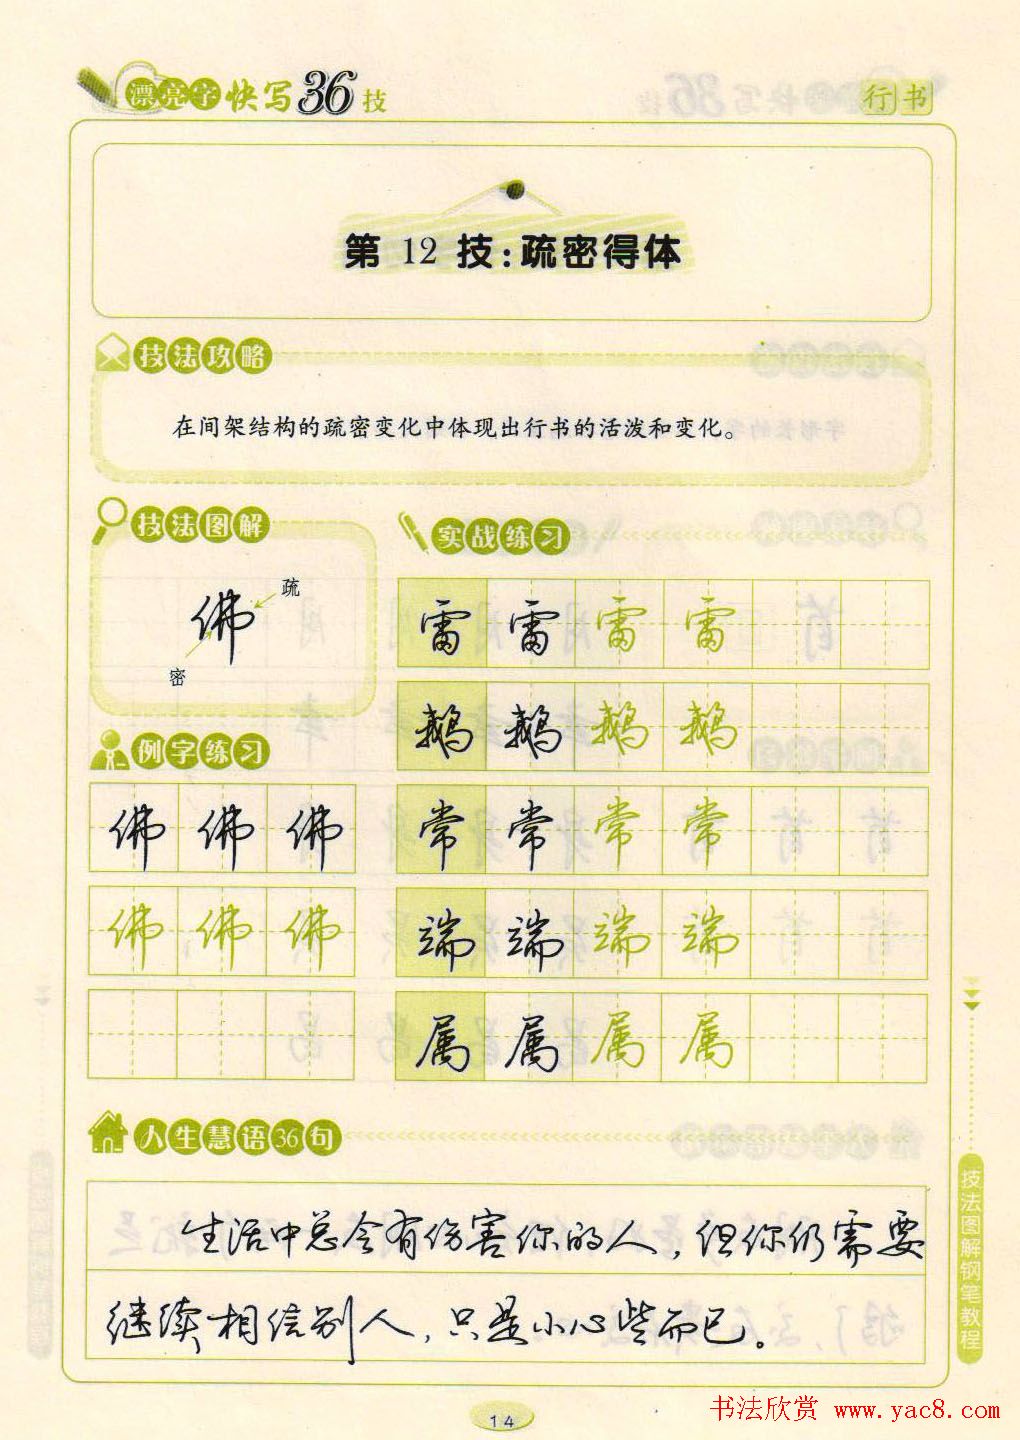 漂亮字快写36技
行书
第 12 技:疏密得体
技法攻略
在间架结构的疏密变化中体现出行书的活泼和变化。
技法图解
佛
疏
密
例字练习
佛 佛 佛
佛 佛 佛
实战练习
雷 雷 雷 雷
鹅 鹅 鹅 鹅
常 常 常 常
端 端 端 端
属 属 属 属
人生慧语36句
生活中总会有伤害你的人，但你仍需要
继续相信别人，只是小心些而已。
技法图解钢笔教程
14
书法欣赏 www.yac8.com